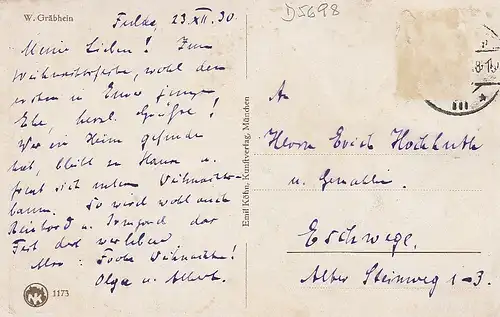 W. Gräbhein
D5698
Fulda, 23.XII.30
Meine Lieben! Zum
Weihnachtsfeste, wohl dem
ersten in Eurer jungen
Ehe, herzl. Grüße!
Wer ein Heim gefunden
hat, bleibt zu Hause u.
freut sich unterm Weihnachts-
baum. So wird wohl auch
u. Irmgard das
Fest dort verleben
Also: Frohe Weihnachten!
Olga u. Albert.
NK 1173
Emil Köhn, Kunstverlag, München
An
Herrn Erich Hochhuth
u. Gemahlin.
Eschwege.
Alter Steinweg 1-3.